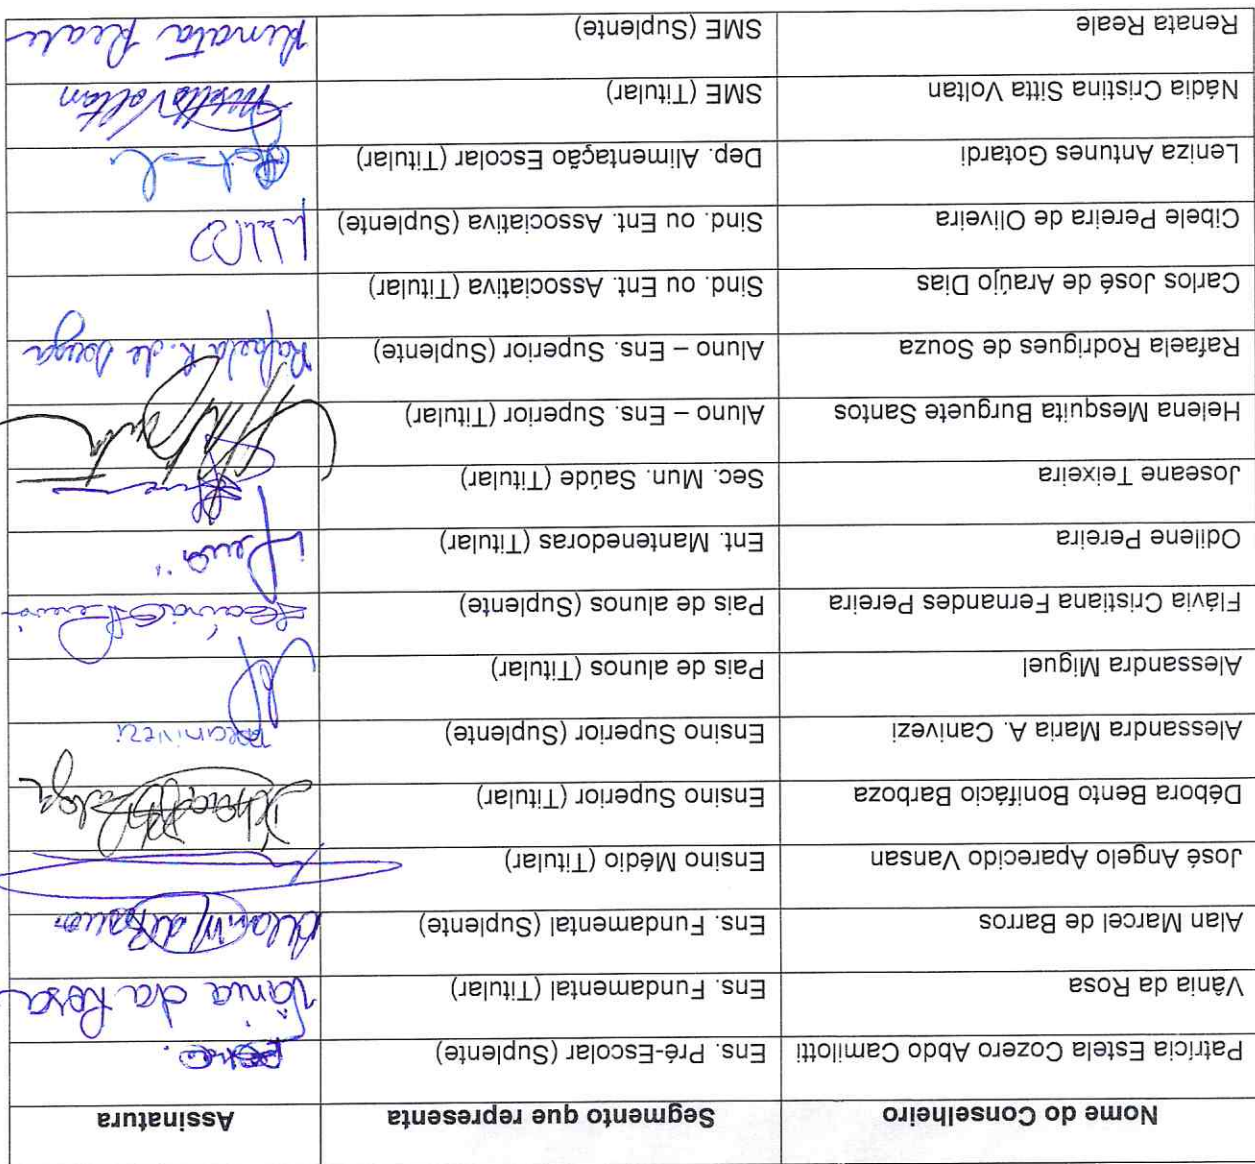 Nome do Conselheiro Segmento que representa Assinatura
Patricia Estela Cozero Abdo Camilotti Ens. Pré-Escolar (Suplente)
Vânia da Rosa Ens. Fundamental (Titular) Vânia da Rosa
Alan Marcel de Barros Ens. Fundamental (Suplente) Alan M de Barros
José Angelo Aparecido Vansan Ensino Médio (Titular)
Débora Bento Bonifácio Barboza Ensino Superior (Titular)
Alessandra Maria A. Canivezi Ensino Superior (Suplente) Canivezi
Alessandra Miguel Pais de alunos (Titular)
Flávia Cristiana Fernandes Pereira Pais de alunos (Suplente)
Odilene Pereira Ent. Mantenedoras (Titular)
Joseane Teixeira Sec. Mun. Saúde (Titular)
Helena Mesquita Burguete Santos Aluno – Ens. Superior (Titular)
Rafaela Rodrigues de Souza Aluno – Ens. Superior (Suplente) Rafaela R. de Souza
Carlos José de Araújo Dias Sind. ou Ent. Associativa (Titular)
Cibele Pereira de Oliveira Sind. ou Ent. Associativa (Suplente)
Leniza Antunes Gotardi Dep. Alimentação Escolar (Titular)
Nádia Cristina Sitta Voltan SME (Titular) Voltan
Renata Reale SME (Suplente) Renata Reale